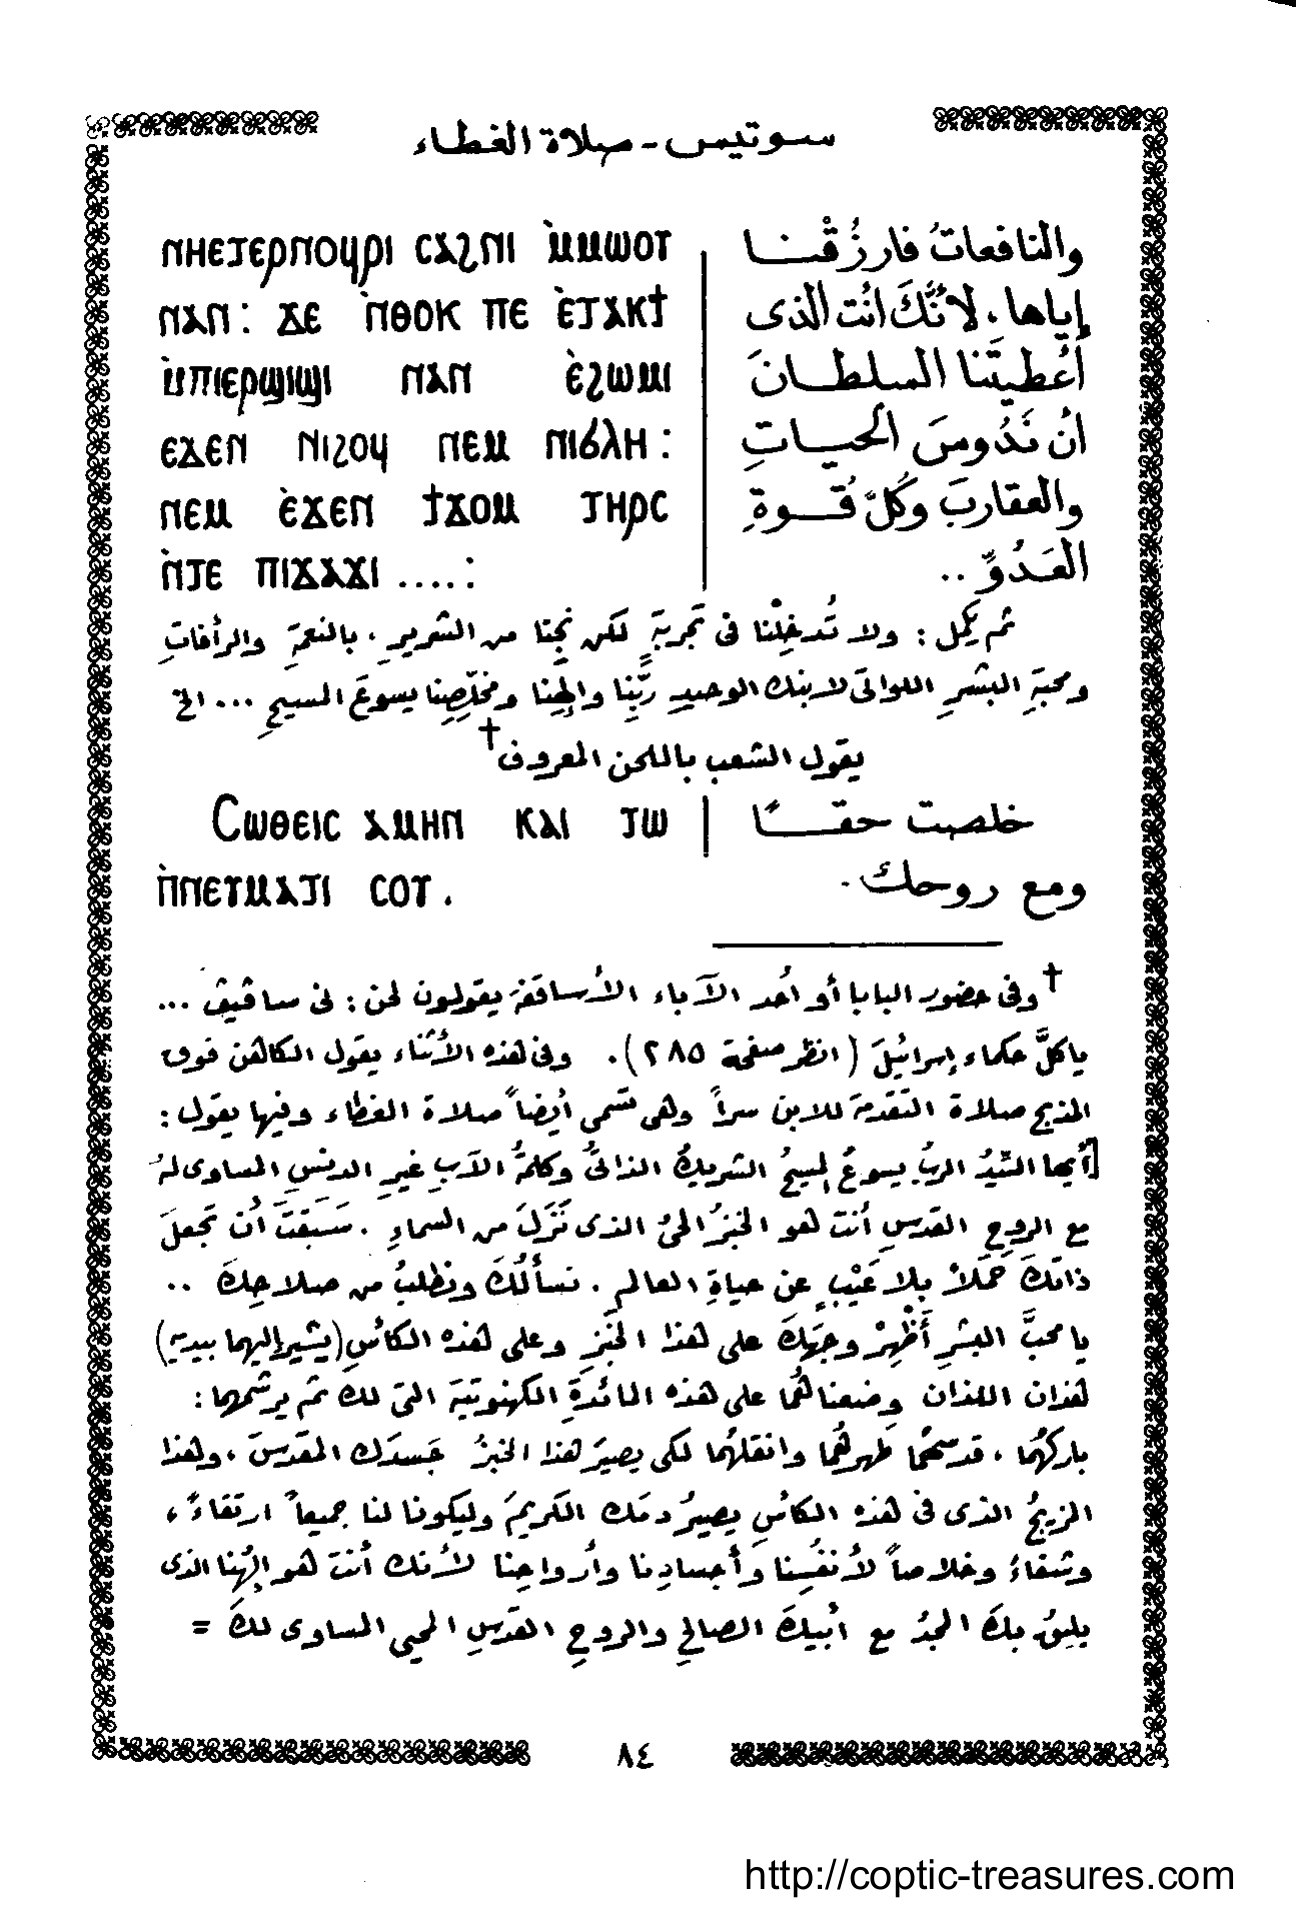 سوتيس - صلاة الغطاء
ⲛⲏⲉⲧⲉⲣⲛⲟϥⲣⲓ ⲥⲁϩⲛⲓ ⲙ̀ⲙⲱⲟⲩ
ⲛⲁⲛ: ϫⲉ ⲛ̀ⲑⲟⲕ ⲡⲉ ⲉ̀ⲧⲁⲕϯ
ⲙ̀ⲡⲓⲉⲣϣⲓϣⲓ ⲛⲁⲛ ⲉ̀ϩⲱⲙⲓ
ⲉϫⲉⲛ ⲛⲓϩⲟϥ ⲛⲉⲙ ⲛⲓϭⲗⲏ:
ⲛⲉⲙ ⲉ̀ϫⲉⲛ ϯϫⲟⲙ ⲧⲏⲣⲥ
ⲛ̀ⲧⲉ ⲡⲓϫⲁϫⲓ ....:
والنافعاتُ فارزُقْنا
إياها. لأنَّكَ أنت الذى
أعْطيتَنا السلطانَ
أنْ نَدُوسَ الحياتِ
والعقاربَ وكُلَّ قُوةِ
العَدُوِّ ..
ثم يكمل: ولا تُدخِلْنا فى تجربةٍ لكن نجِّنا من الشريرِ. بالنعمةِ والرأفاتِ
ومحبةِ البشرِ اللواتى لابنك الوحيدِ ربِّنا وإلهِنا ومخلِّصِنا يسوعَ المسيحِ ... الخ
يقول الشعب باللحن المعروف†
Ⲥⲱⲑⲉⲓⲥ ⲁⲙⲏⲛ ⲕⲁⲓ ⲧⲱ
ⲡ̀ⲛⲉⲩⲙⲁⲧⲓ ⲥⲟⲩ.
خلصت حقًا
ومع روحك.
† وفى حضور البابا أو أحد الآباء الأساقفة يقولون لحن: نى سافيڤ ...
ياكلَّ حكماء إسرائيلَ (انظر صفحة ٢٨٥). وفى هذه الأثناء يقول الكاهن فوق
المذبح صلاة التقدمة للابن سراً وهى تسمى أيضاً صلاة الغطاء وفيها يقول:
[أيها السّيدُ الربُّ يسوعُ المسيحُ الشريكُ الذاتىُّ وكلمةُ الآبِ غيرِ الدنسِ المساوى لهُ
مع الروحِ القدسِ أنت هو الخبزُ الحىُّ الذى نَزَلَ من السماءِ. سَبَقتَ أن تجعلَ
ذاتكَ حَمَلاً بلا عَيْبٍ عن حياةِ العالمِ. نسألُكَ ونطلبُ من صلاحِكَ ..
يا محبَّ البشرِ أَظْهِرْ وجهَكَ على هذا الخبزِ وعلى هذه الكأسِ (يشير إليهما بيديه)
هذان اللذان وضعناهُما على هذه المائدةِ الكهنوتيةِ التى لك ثم يرشمهما:
باركهُما، قدسهُما طهرهُما وانقلهُما لكى يصيرَ هذا الخبزُ جَسدَك المقدسَ، وهذا
المزيجُ الذى فى هذه الكأسِ يصيرُ دمَك الكريمَ وليكونا لنا جميعاً ارتقاءً،
وشفاءً وخلاصاً لأنفُسِنا وأجسادِنا وأرواحِنا لأنك أنت هو إلهُنا الذى
يليقُ بكَ المجدُ مع أبيكَ الصالحِ والروحِ القدسِ المحيى المساوى لكَ =
٨٤
http://coptic-treasures.com